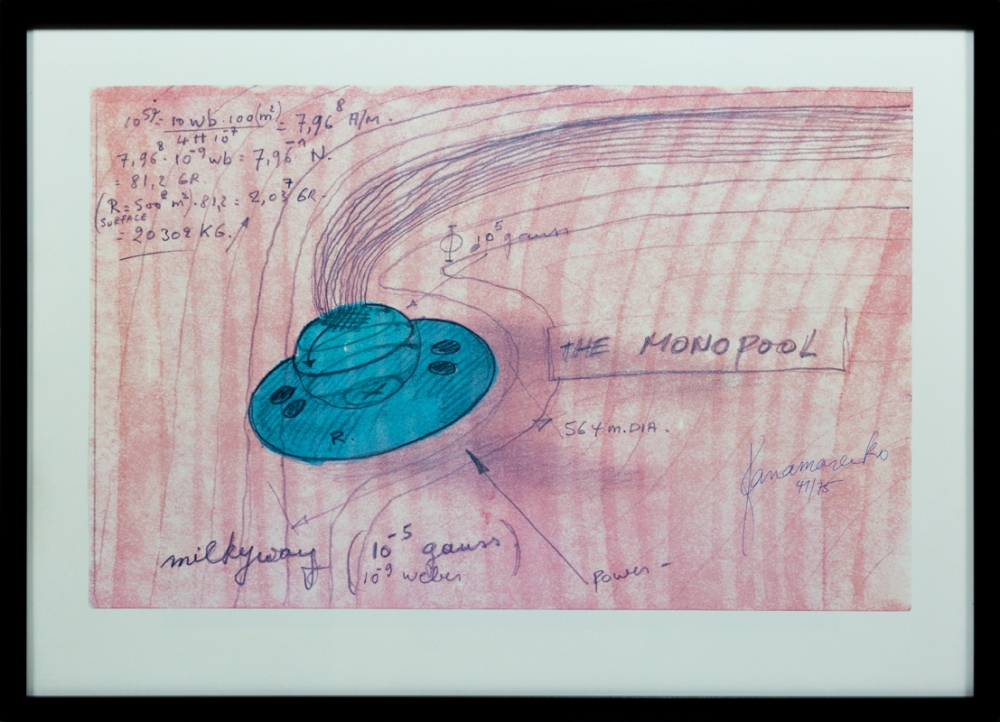 10 wb.100(m²) = 7,96⁸ A/M.
4π 10⁻⁷
7,96⁸.10⁻⁹ wb = 7,96⁻¹ N.
= 81,2 GR.
(R = 500² m²).81,2 = 2,03⁷ GR.
(SURFACE
= 20302 KG.
Φ 10⁵ gauss
THE MONOPOOL
564 m. DIA.
R.
Panamarenko
41/75
milkyway (10⁻⁵ gauss)
10⁻⁹ weber
power -